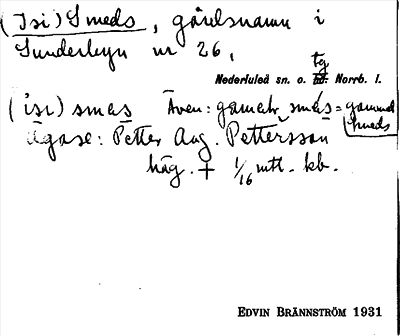 (Isi) Smeds, gårdsnamn i
Sunderbyn nr 26,
Nederluleå sn. o. tg Norrb. l.
(isi) smɛs Även: gamałr smɛs = gammel
smeds
Ägare: Petter Aug. Pettersson
häg. + 1/16 mtl. kb.
EDVIN BRÄNNSTRÖM 1931